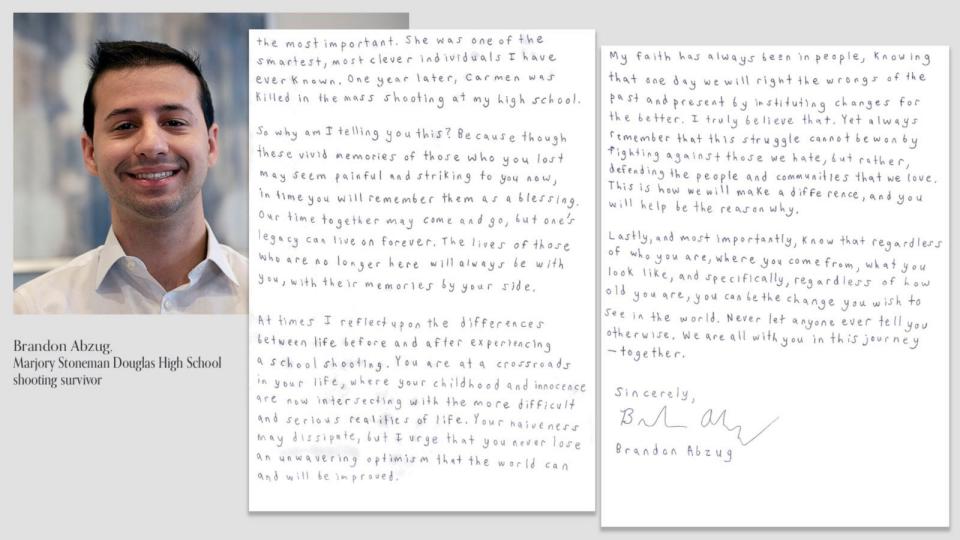 Brandon Abzug,
Marjory Stoneman Douglas High School
shooting survivor
the most important. She was one of the
smartest, most clever individuals I have
ever known. One year later, Carmen was
killed in the mass shooting at my high school.
So why am I telling you this? Because though
these vivid memories of those who you lost
may seem painful and striking to you now,
in time you will remember them as a blessing.
Our time together may come and go, but one's
legacy can live on forever. The lives of those
who are no longer here will always be with
you, with their memories by your side.
At times I reflect upon the differences
between life before and after experiencing
a school shooting. You are at a crossroads
in your life, where your childhood and innocence
are now intersecting with the more difficult
and serious realities of life. Your naiveness
may dissipate, but I urge that you never lose
an unwavering optimism that the world can
and will be improved.
My faith has always been in people, knowing
that one day we will right the wrongs of the
past and present by instituting changes for
the better. I truly believe that. Yet always
remember that this struggle cannot be won by
fighting against those we hate, but rather,
defending the people and communities that we love.
This is how we will make a difference, and you
will help be the reason why.
Lastly, and most importantly, know that regardless
of who you are, where you come from, what you
look like, and specifically, regardless of how
old you are, you can be the change you wish to
see in the world. Never let anyone ever tell you
otherwise. We are all with you in this journey
—together.
Sincerely,
Brandon Abzug